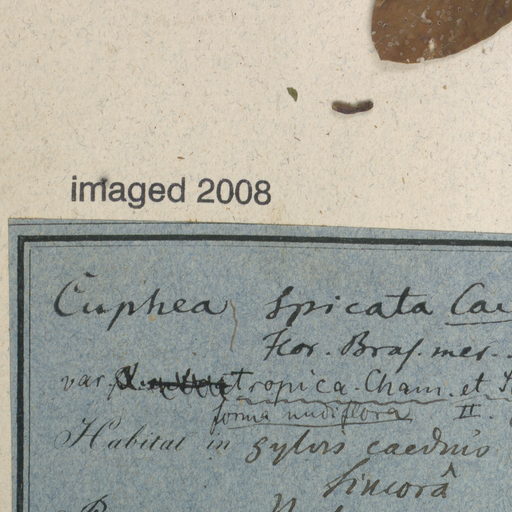 imaged 2008
Cuphea spicata Cav
Flor. Bras. mer.
var. tropica. Cham. et
forma nudiflora II.
Habitat in sylvis caeduis
Sincorâ